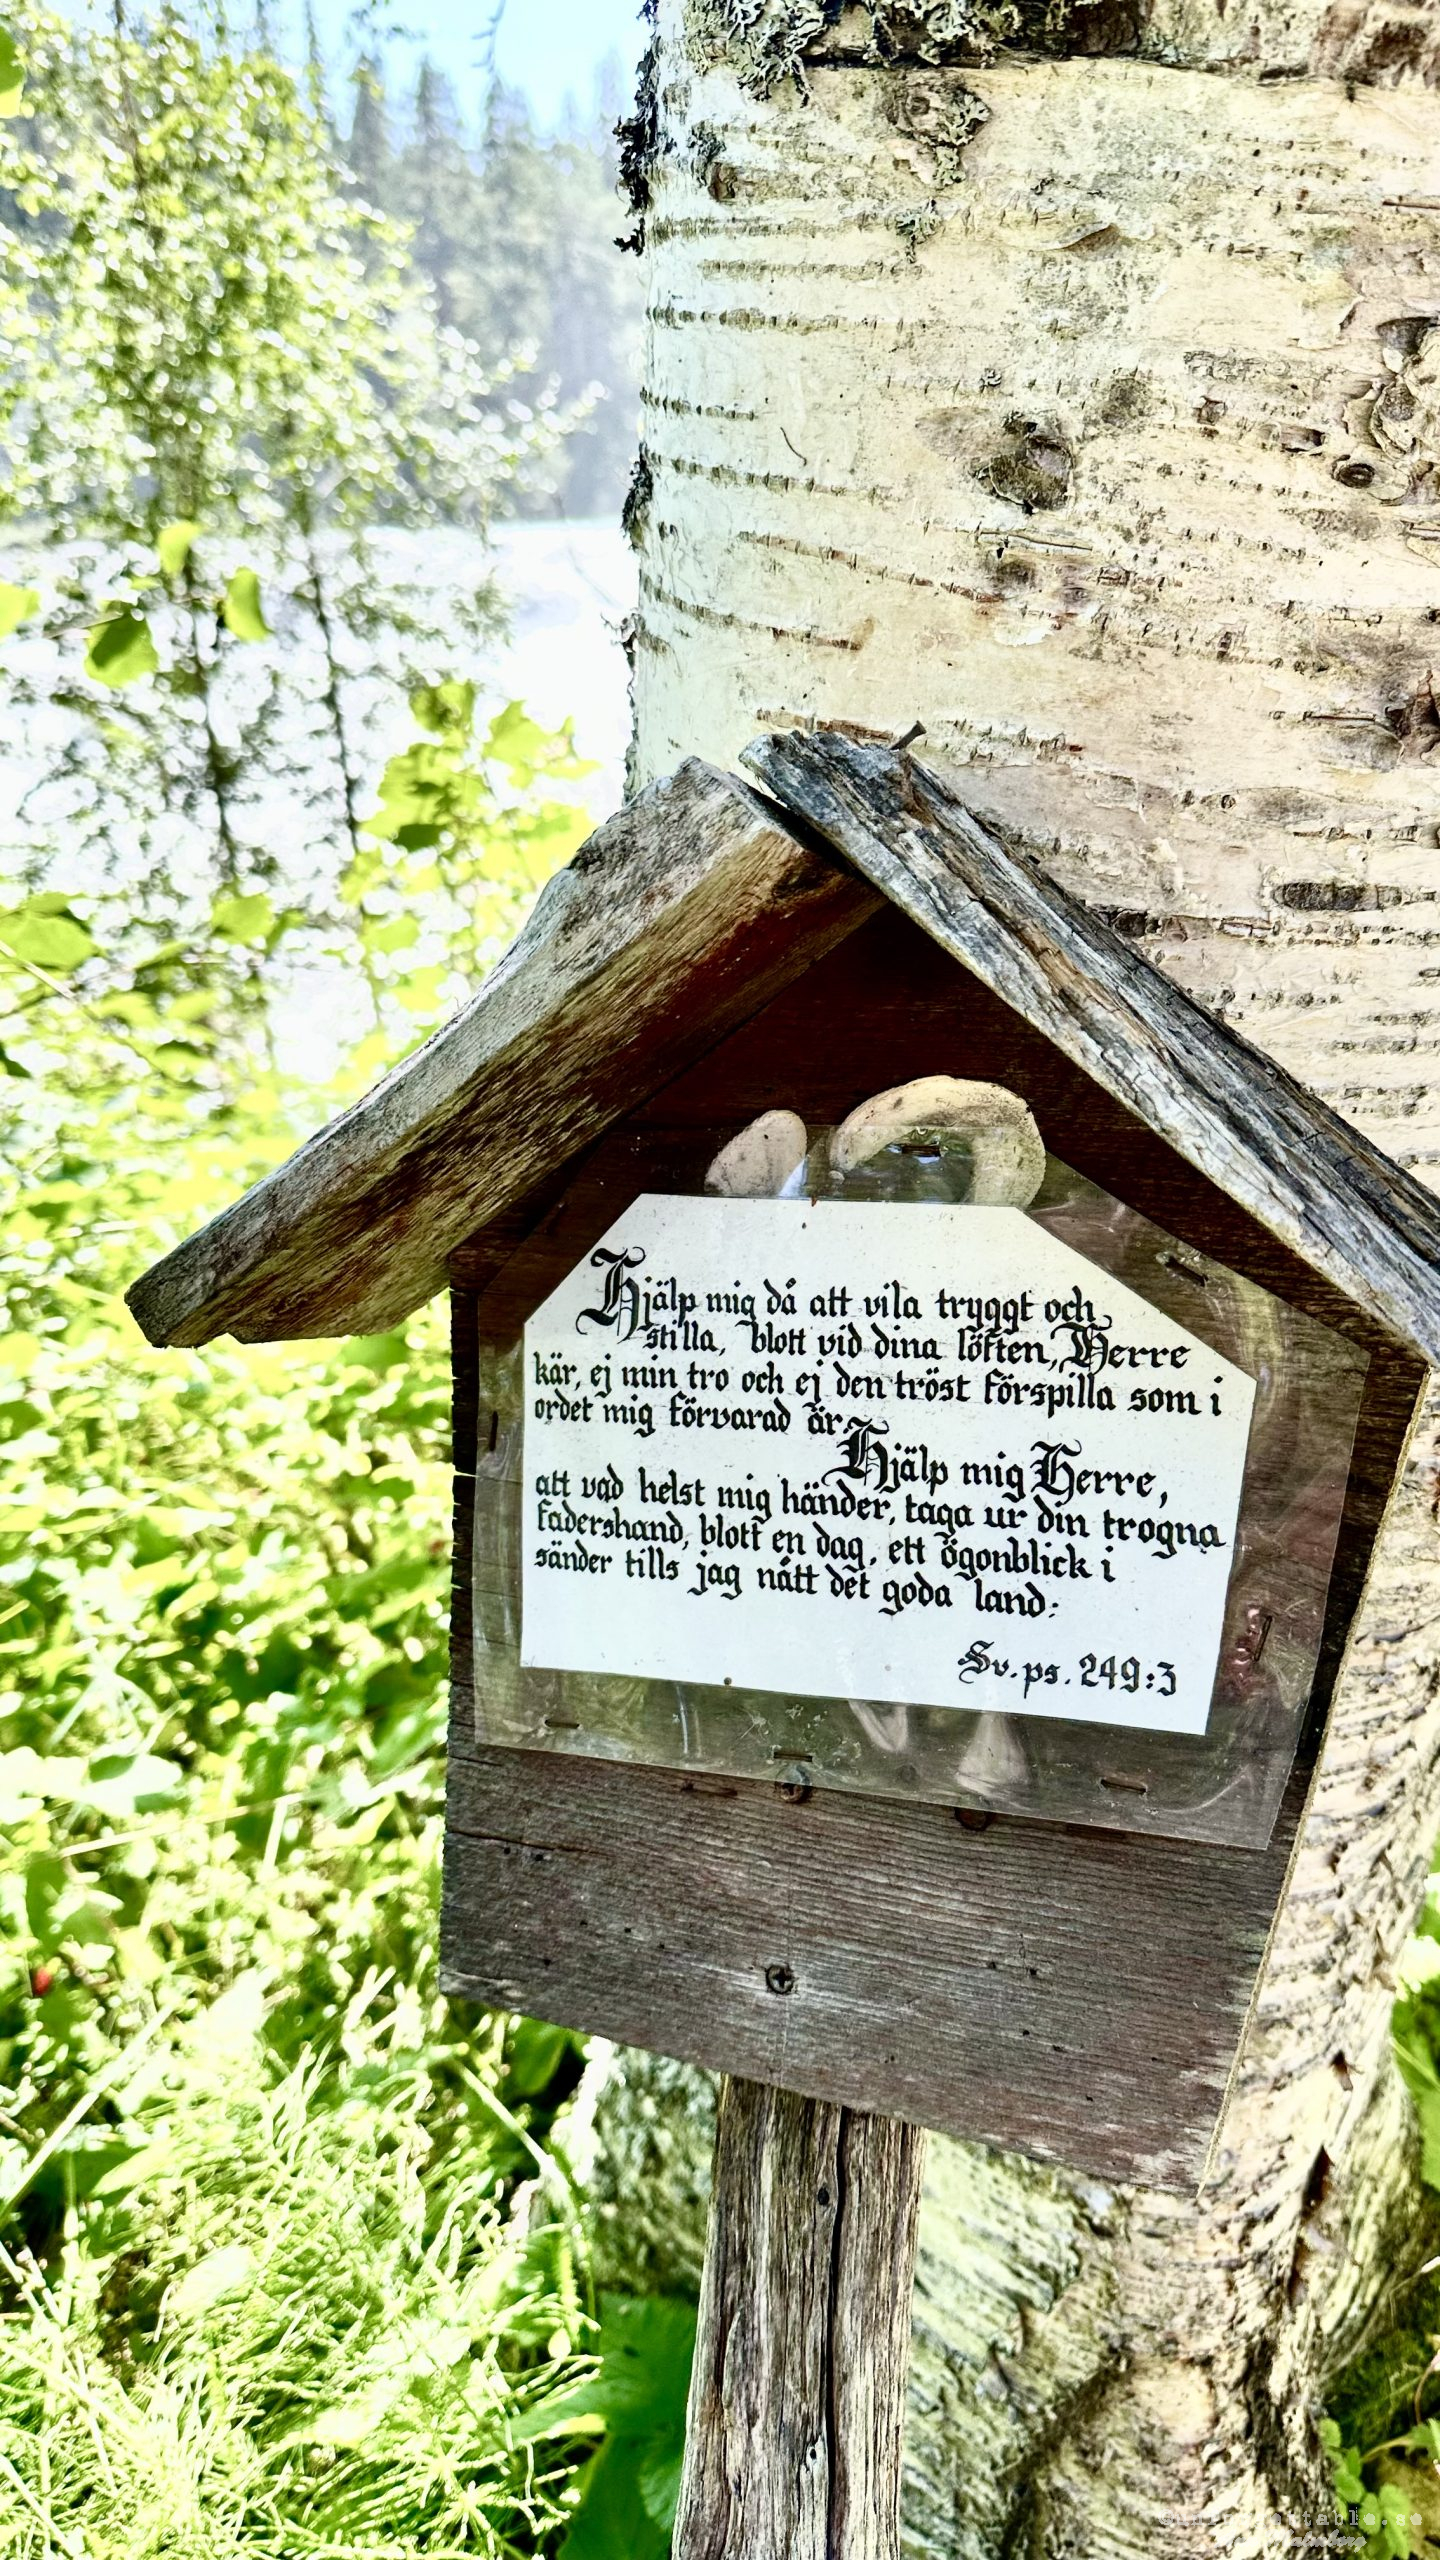 Hjälp mig då att vila tryggt och
stilla, blott vid dina löften, Herre
kär, ej min tro och ej den tröst förspilla som i
ordet mig förvarad är.
Hjälp mig Herre,
att vad helst mig händer, taga ur din trogna
fadershand, blott en dag, ett ögonblick i
sänder tills jag nått det goda land.
Sv. ps. 249:3